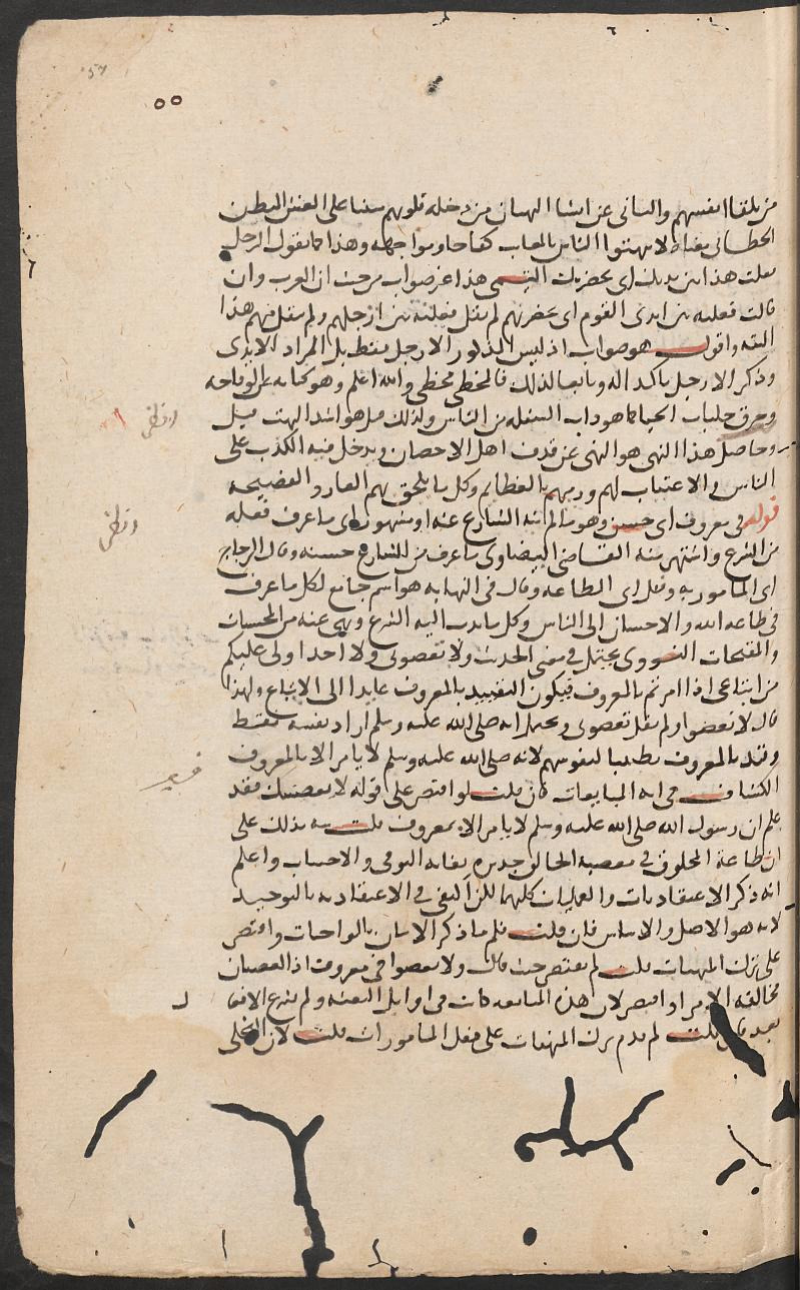 ٥٥
من تلقاء انفسهم والثاني عن انشاء البهتان من دخلة قلوبهم مبنيا على الغش المبطن
الخطابي معناه لا تبهتوا الناس بالمعايب كفاحا ومواجهة وهذا كما يقول الرجل
فعلت هذا بين يديك اي بحضرتك التيمي هذا غير صواب من حيث ان العرب وان
قالت فعلته بين ايدي القوم اي بحضرتهم لم تقل فعلته بين ارجلهم ولم ينقل عنهم هذا
البتة واقول هو صواب اذ ليس المذكور الارجل فقط بل المراد الايدي
وذكر الارجل تاكيدا له وتابعا لذلك فالمخطي مخطي والله اعلم وهو كناية عن الوقاحة
وخرق جلباب الحيا كما هو داب السفلة من الناس ولذلك قيل هو اشد البهت
وحاصل هذا النهي هو النهي عن قذف اهل الاحصان ويدخل فيه الكذب على
الناس والاغتياب لهم ورميهم بالعظايم وكل ما يلحق بهم العار والفضيحة
قوله في معروف اي حسن وهو ما لم ينه الشارع عنه او مشهور اي ما عرف فعله
من الشرع واشتهر منه القاضي البيضاوي ما عرف من الشارع حسنه وقال الزجاج
اي المامور به وقيل اي الطاعة وقال في النهاية هو اسم جامع لكل ما عرف
في طاعة الله والاحسان الى الناس وكل ما ندب اليه الشرع ونهى عنه من المحسنات
والمقبحات النووي يحتمل في معنى الحديث ولا تعصوني ولا احدا ولي عليكم
من اتباعي اذا امرتم بالمعروف فيكون التقييد بالمعروف عايدا الى الاتباع ولهذا
قال لا تعصوا ولم يقل تعصوني ويحتمل انه صلى الله عليه وسلم اراد نفسه فقط
وقيد بالمعروف تطييبا لنفوسهم لانه صلى الله عليه وسلم لا يامر الا بالمعروف
الكشاف في اية المبايعات فان قلت لو اقتصر على قوله لا يعصينك فقد
علم ان رسول الله صلى الله عليه وسلم لا يامر الا بمعروف قلت نبه بذلك على
ان طاعة المخلوق في معصية الخالق جديرة بغاية التوقي والاجتناب واعلم
انه ذكر الاعتقاديات والعمليات كلتيهما لكن اكتفى في الاعتقادية بالتوحيد
لانه هو الاصل والاساس فان قلت فلم ما ذكر الاتيان بالواجبات واقتصر
على ترك المنهيات قلت لم يقتصر حيث قال ولا تعصوا في معروف اذ العصيان
مخالفة الامر او اقتصر لان هذه المبايعة كانت في اوايل البعثة ولم تشرع الافعال
بعد فان قلت لم قدم ترك المنهيات على فعل المامورات قلت لان التخلي